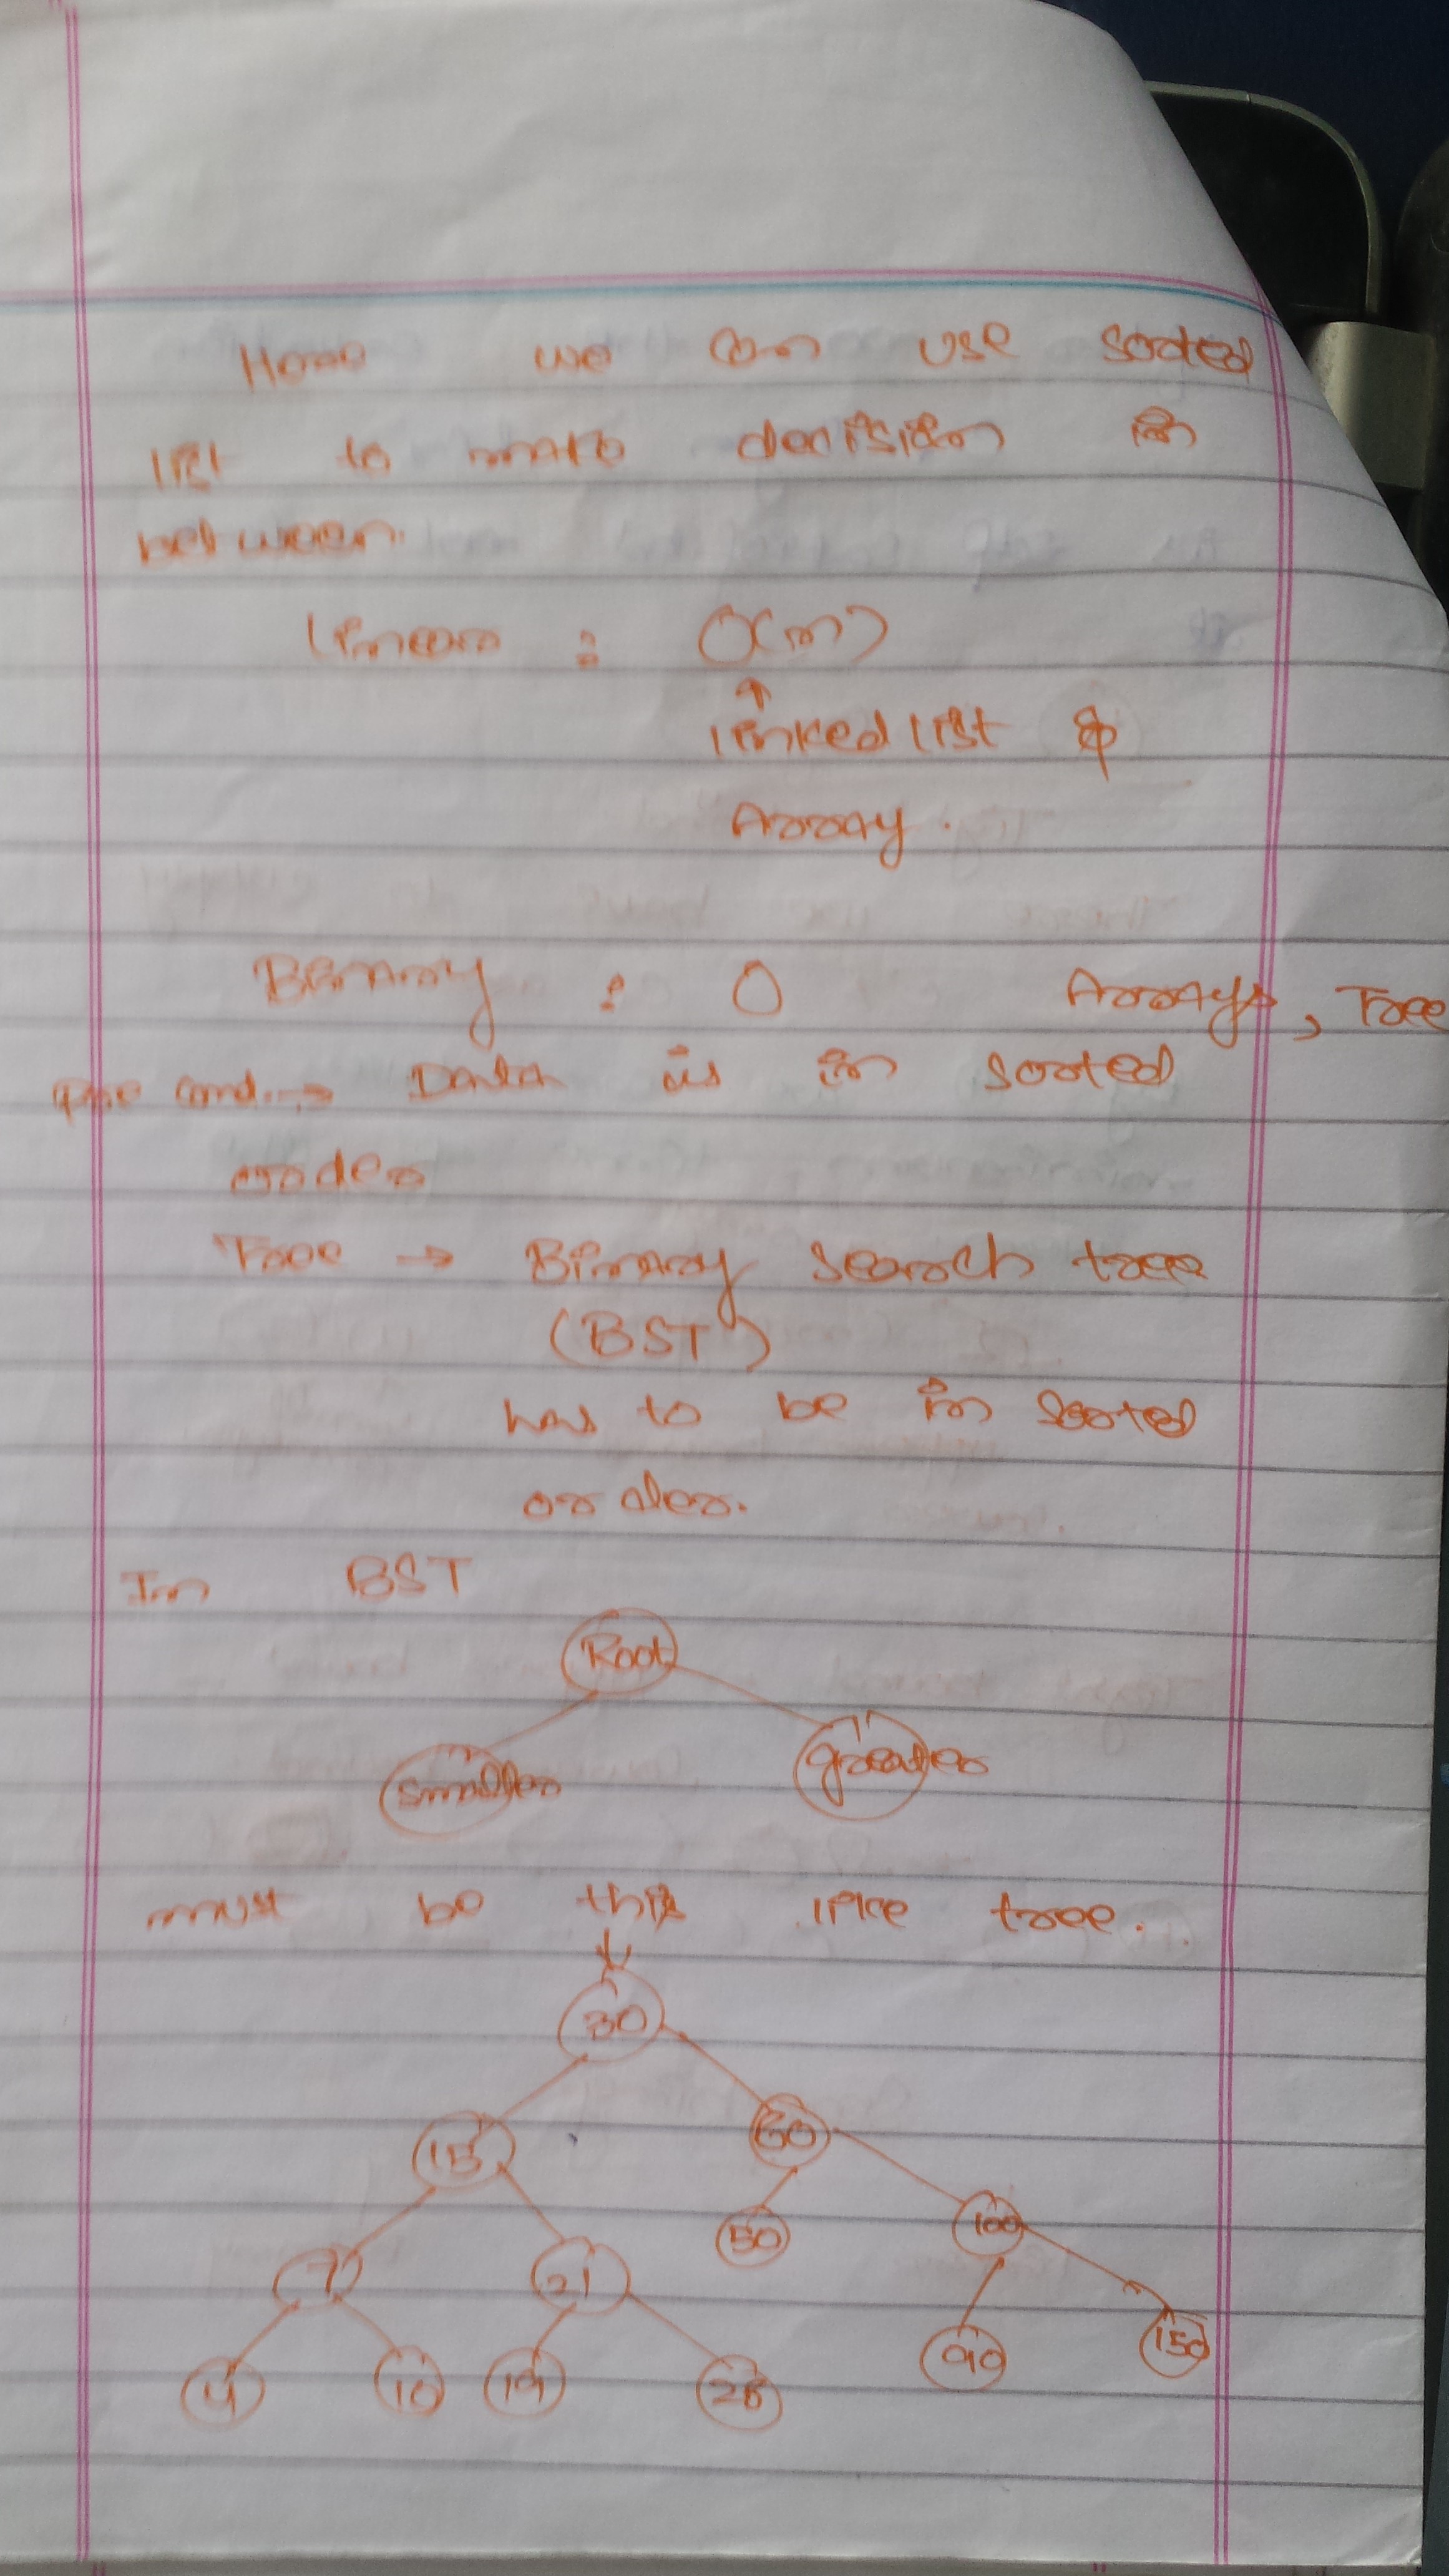 Here we can use sorted
list to make decision in
between.
Linear : O(n)
↑
linked list &
Array.
Binary : O Arrays, Tree
Pre cond. → Data is in sorted
order
Tree → Binary search tree
(BST)
has to be in sorted
order.
In BST
Root
smaller greater
must be this like tree.
↓
30
15 60
7 21 50 100
4 10 19 28 90 150